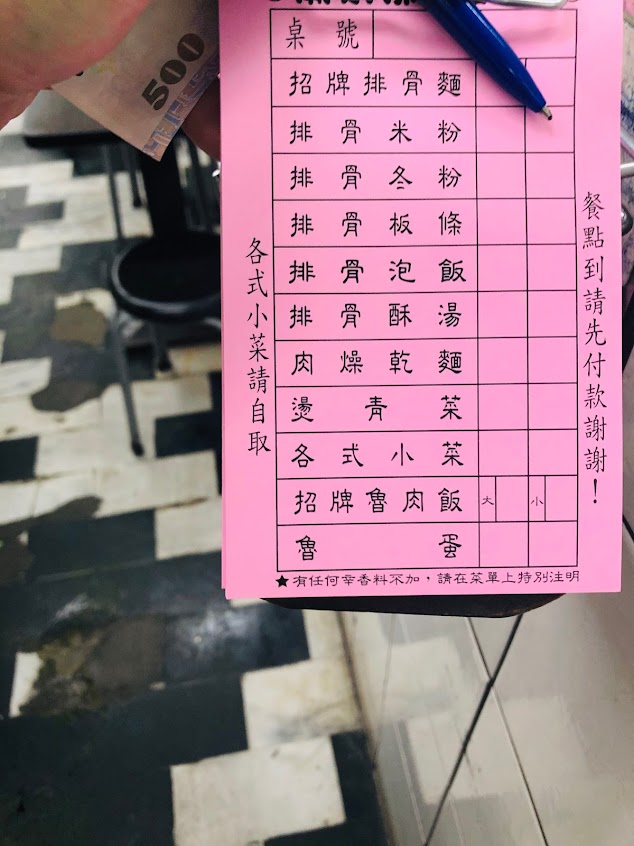 500
桌號
招牌排骨麵
排骨米粉
排骨冬粉
排骨板條
排骨泡飯
排骨酥湯
肉燥乾麵
燙青菜
各式小菜
招牌魯肉飯 大 小
魯蛋
★有任何辛香料不加，請在菜單上特別注明
各式小菜請自取
餐點到請先付款謝謝！